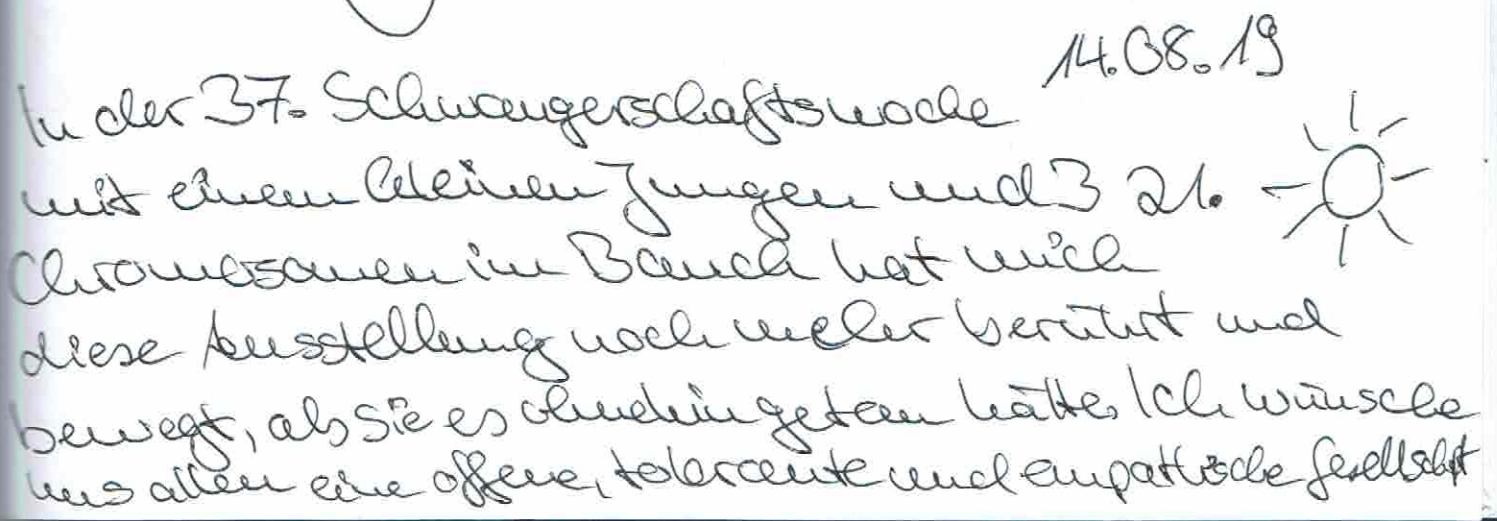 14.08.19
In der 37. Schwangerschaftswoche
mit einem kleinen Jungen und 3 21.
Chromosomen im Bauch hat mich
diese Ausstellung noch mehr berührt und
bewegt, als sie es ohnehin getan hätte. Ich wünsche
uns allen eine offene, tolerante und empathische Gesellschaft